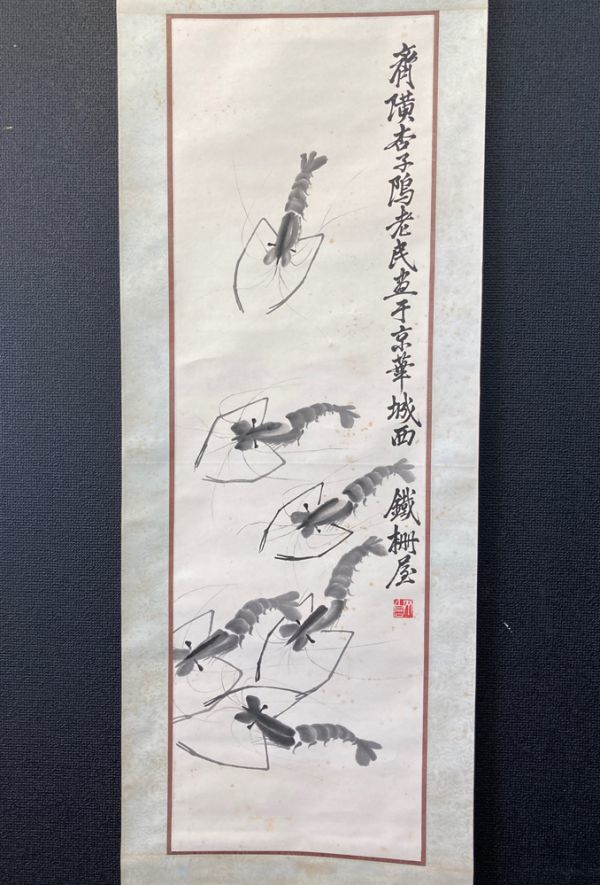 齊璜杏子隖老民畫于京華城西 鐵柵屋